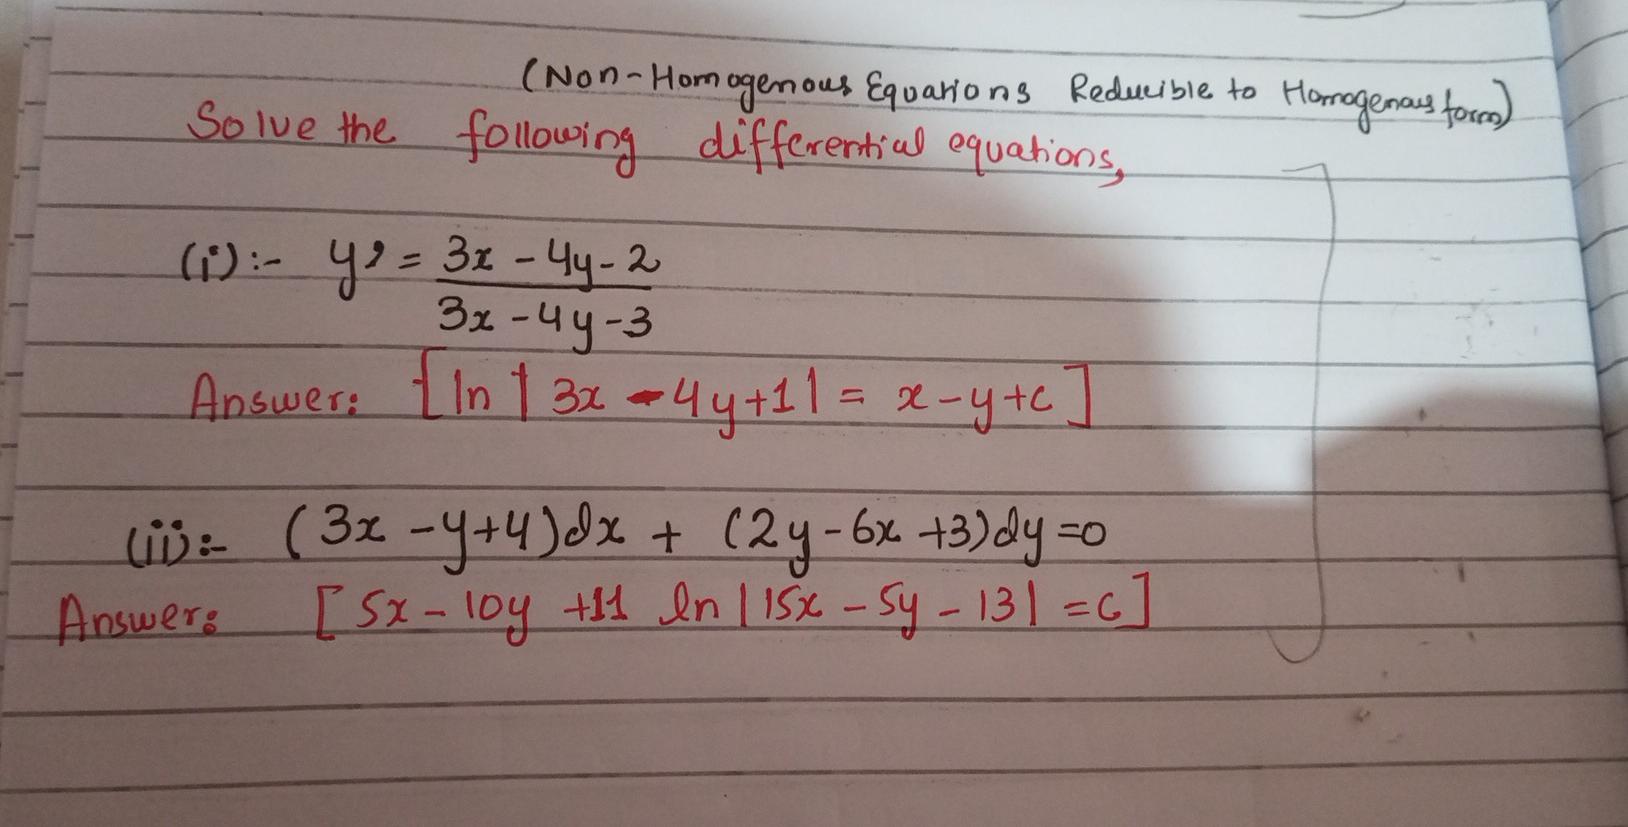 (Non-Homogenous Equations Reducible to Homogenous form)
Solve the following differential equations,
(i):- y' = 3x - 4y - 2
3x - 4y - 3
Answer: [ln |3x - 4y + 1| = x - y + c]
(ii):- (3x - y + 4)dx + (2y - 6x + 3)dy = 0
Answer: [5x - 10y + 11 ln |15x - 5y - 13| = c]